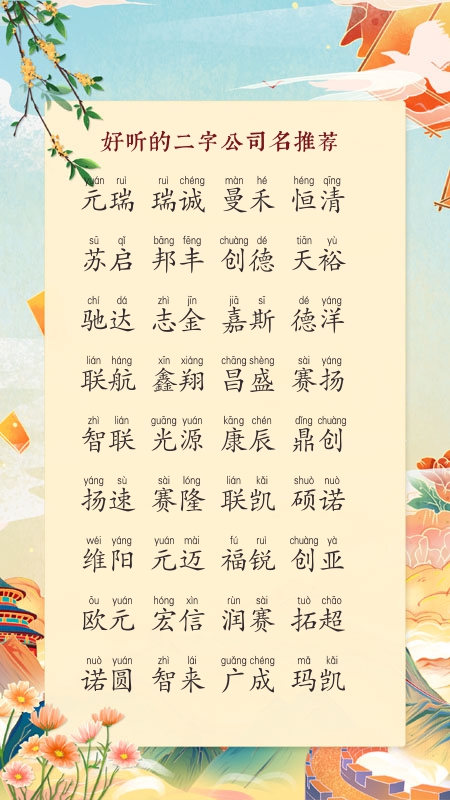 好听的二字公司名推荐
yuán ruì ruì chéng màn hé héng qīng
元瑞 瑞诚 曼禾 恒清
sū qǐ bāng fēng chuàng dé tiān yù
苏启 邦丰 创德 天裕
chí dá zhì jīn jiā sī dé yáng
驰达 志金 嘉斯 德洋
lián háng xīn xiáng chāng shèng sài yáng
联航 鑫翔 昌盛 赛扬
zhì lián guāng yuán kāng chén dǐng chuàng
智联 光源 康辰 鼎创
yáng sù sài lóng lián kǎi shuò nuò
扬速 赛隆 联凯 硕诺
wéi yáng yuán mài fú ruì chuàng yà
维阳 元迈 福锐 创亚
ōu yuán hóng xìn rùn sài tuò chāo
欧元 宏信 润赛 拓超
nuò yuán zhì lái guǎng chéng mǎ kǎi
诺圆 智来 广成 玛凯